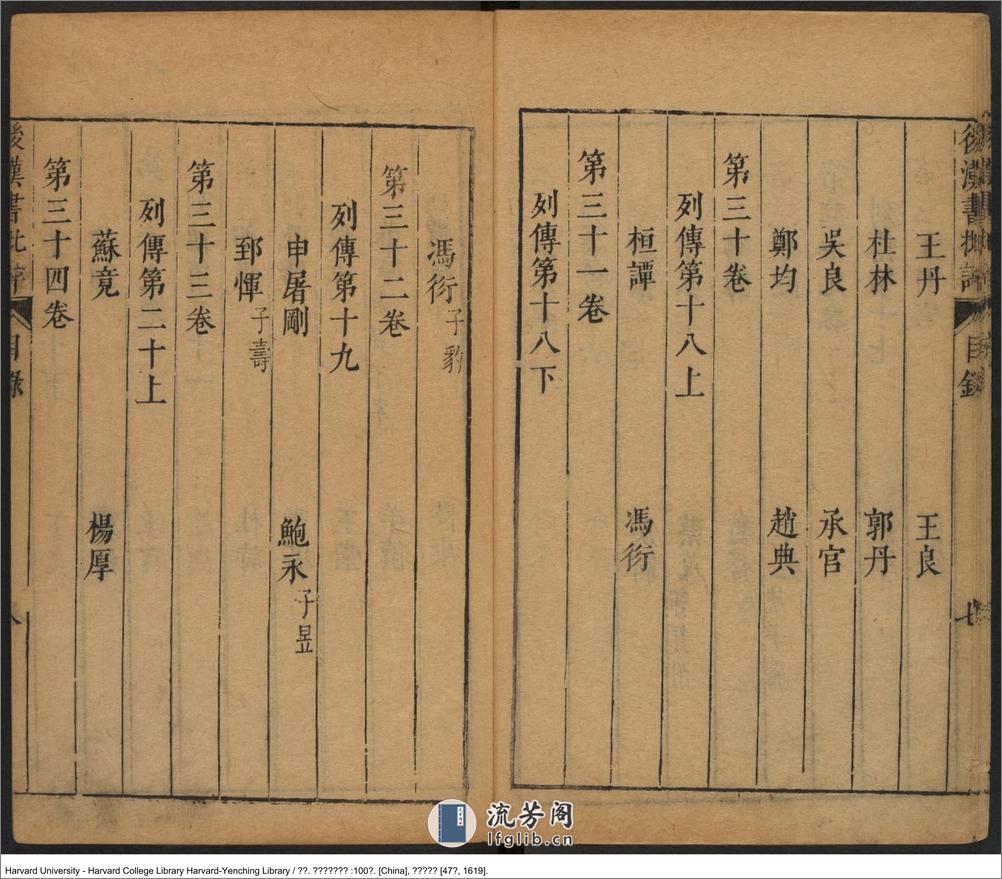 王丹 王良
杜林 郭丹
吳良 承宮
鄭均 趙典
第三十卷
列傳第十八上
桓譚 馮衍
第三十一卷
列傳第十八下
馮衍 子豹
第三十二卷
列傳第十九
申屠剛 鮑永 子昱
郅惲 子壽
第三十三卷
列傳第二十上
蘇竟 楊厚
第三十四卷
後漢書批評 目錄
流芳阁
lfglib.cn
Harvard University - Harvard College Library Harvard-Yenching Library / ??. ??????? :100?. [China], ????? [47?, 1619].